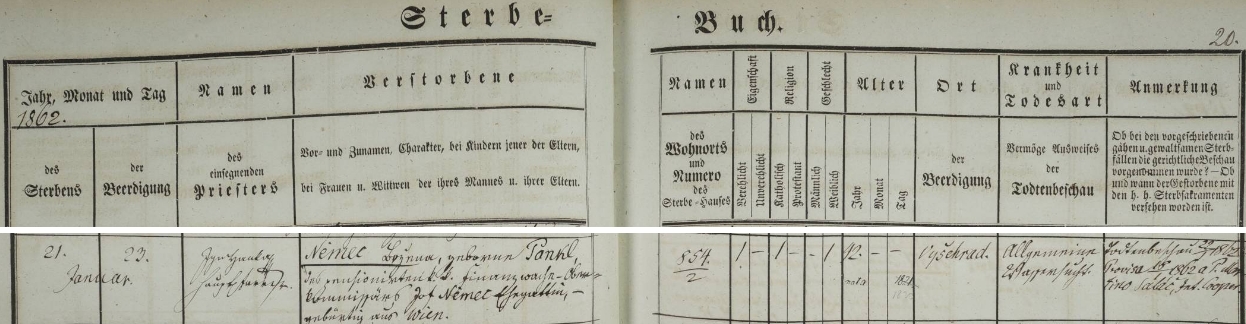 Sterbe-
Buch.
20.
Jahr, Monat und Tag
1862.
Namen
Verstorbene
Namen
Eigenschaft
Religion
Geschlecht
Alter
Ort
Krankheit
und
Todesart
Anmerkung
des
Sterbens
der
Beerdigung
des
einsegnenden
Priesters
Vor- und Zunamen, Charakter, bei Kindern jener der Eltern,
bei Frauen u. Wittwen der ihres Mannes u. ihrer Eltern.
des
Wohnorts
und
Numero
des
Sterbe-Hauses
Verehlicht
Unverehlicht
Katholisch
Protestant
Männlich
Weiblich
Jahr
Monat
Tag
der
Beerdigung
Vermöge Ausweises
der
Todtenbeschau
Ob bei den vorgeschriebenen
gähen u. gewaltsamen Sterb-
fällen die gerichtliche Beschau
vorgenommen wurde? — Ob
und wann der Gestorbene mit
den h. h. Sterbsakramenten
versehen worden ist.
21.
23.
Januar.
Němec Bozena, geborne Pankl,
des pensionirten k.k. Finanzwache-Ober-
kommissärs Jos Němec Ehegattin, —
gebürtig aus Wien.
854.
2
1 — 1 — . 1 42. — —
nata 1820
Vyšehrad.
Allgemeine
Wassersucht.
Todtenbeschau
1862